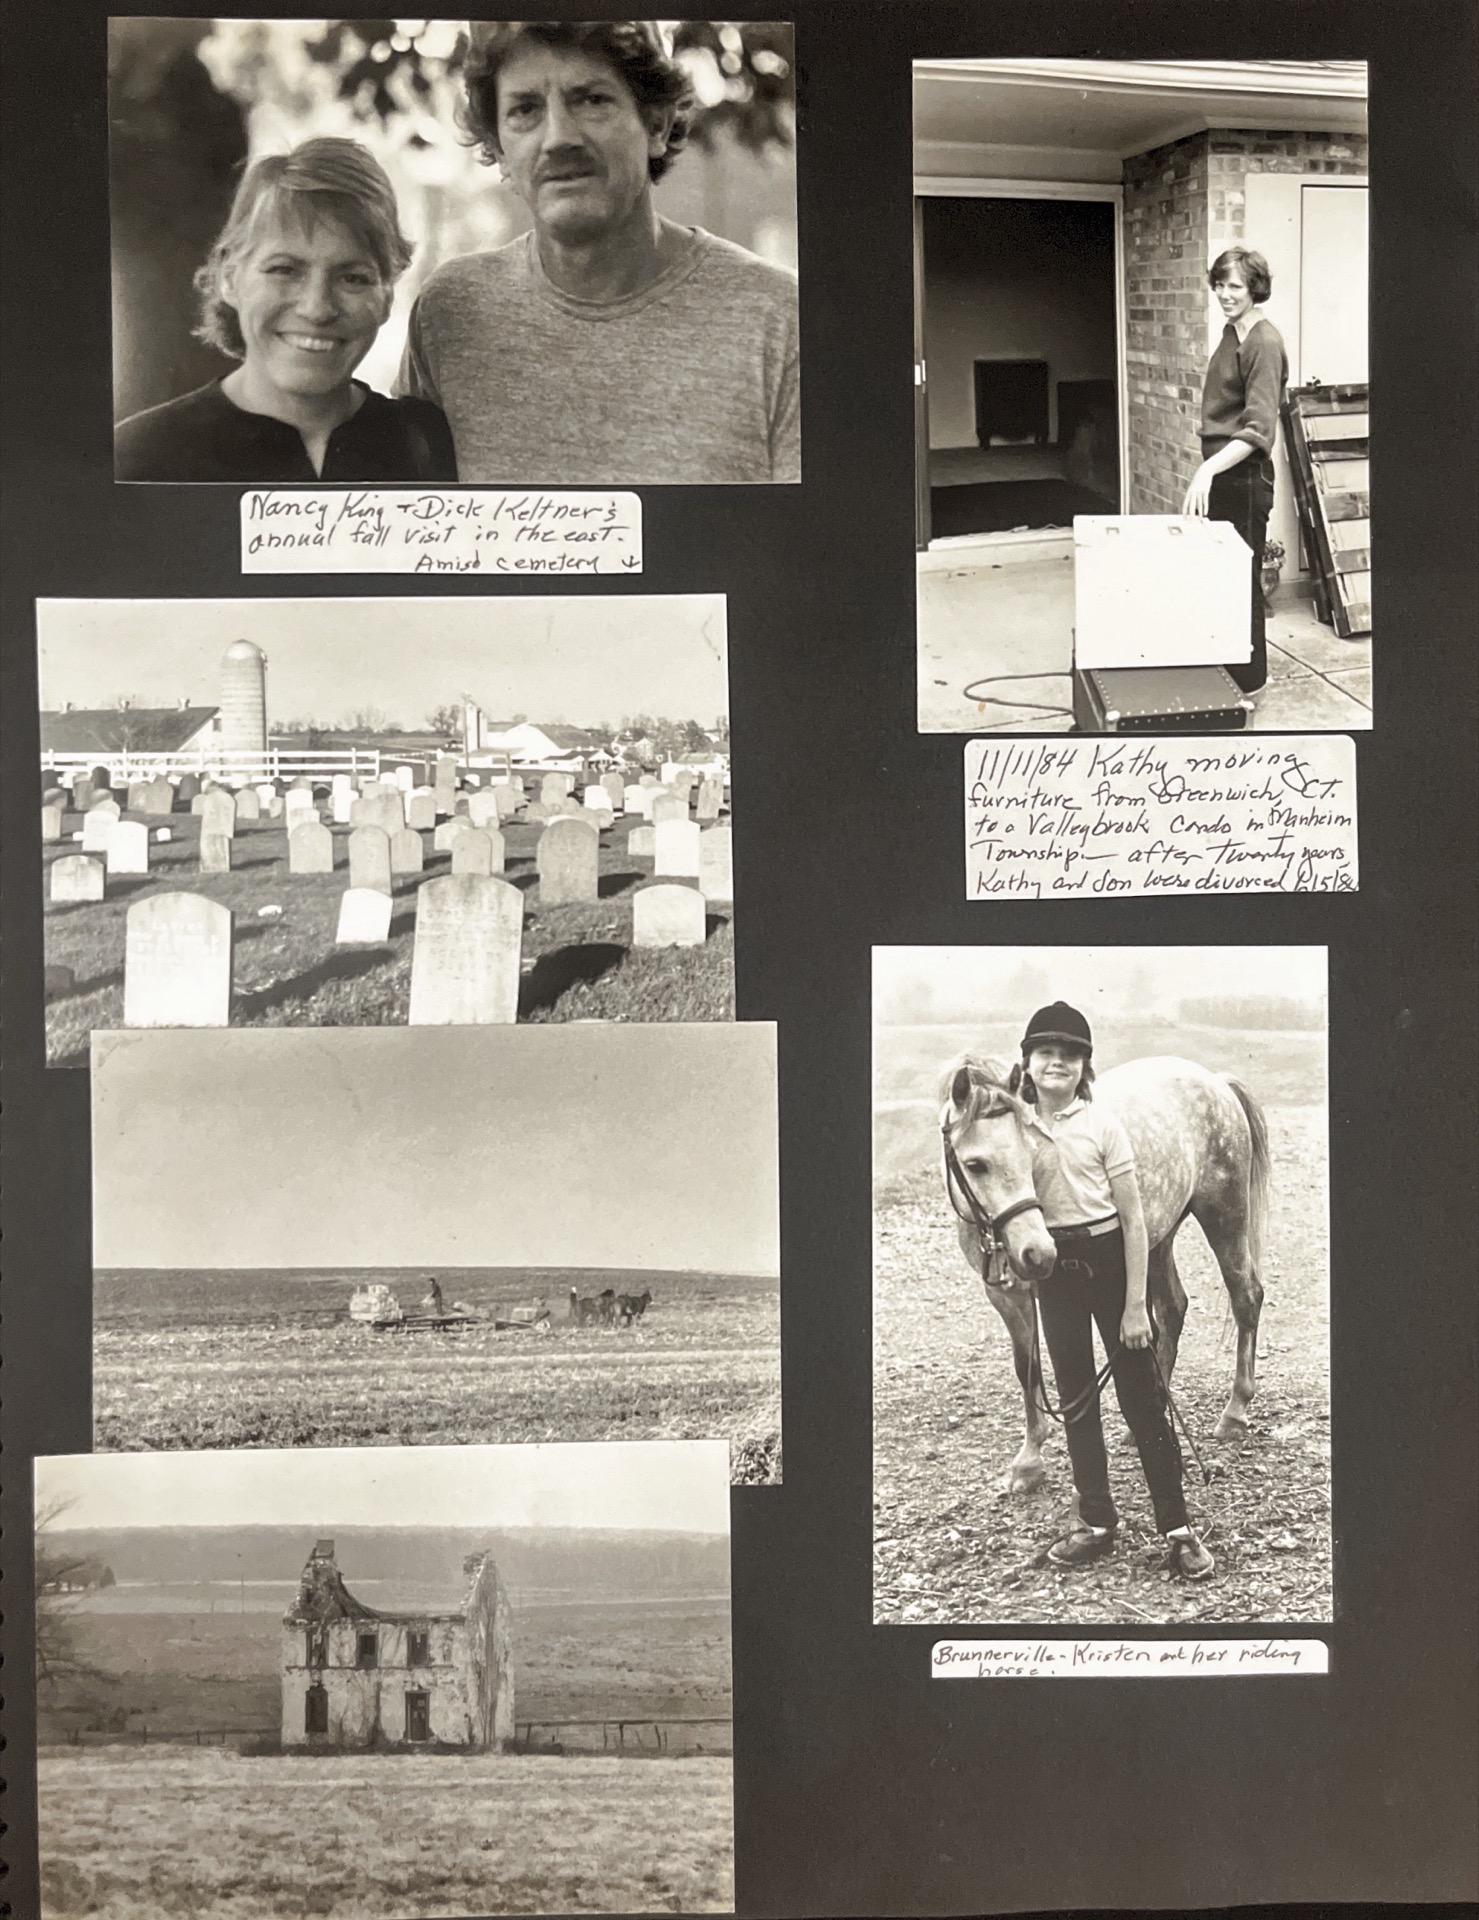 Nancy King + Dick Keltner's
annual fall visit in the east.
Amish cemetery ↓
11/11/84 Kathy moving
furniture from Greenwich, CT.
to a Valleybrook Condo in Manheim
Township — after twenty years,
Kathy and Don were divorced
Brunnerville - Kristen and her riding
horse.